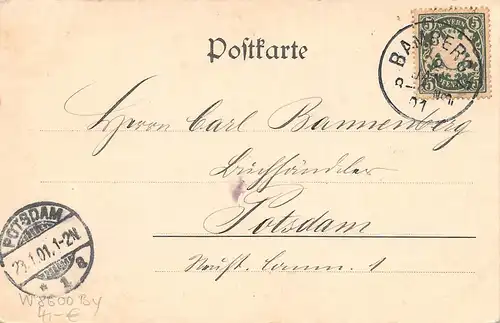 Postkarte
5 BAYERN 5
BAMBERG
JAN.
01
Herrn Carl Bannenberg
Buchhändler
Potsdam
POTSDAM
23.1.01.1-2N
* 1 a
W 8600 By
4,- €